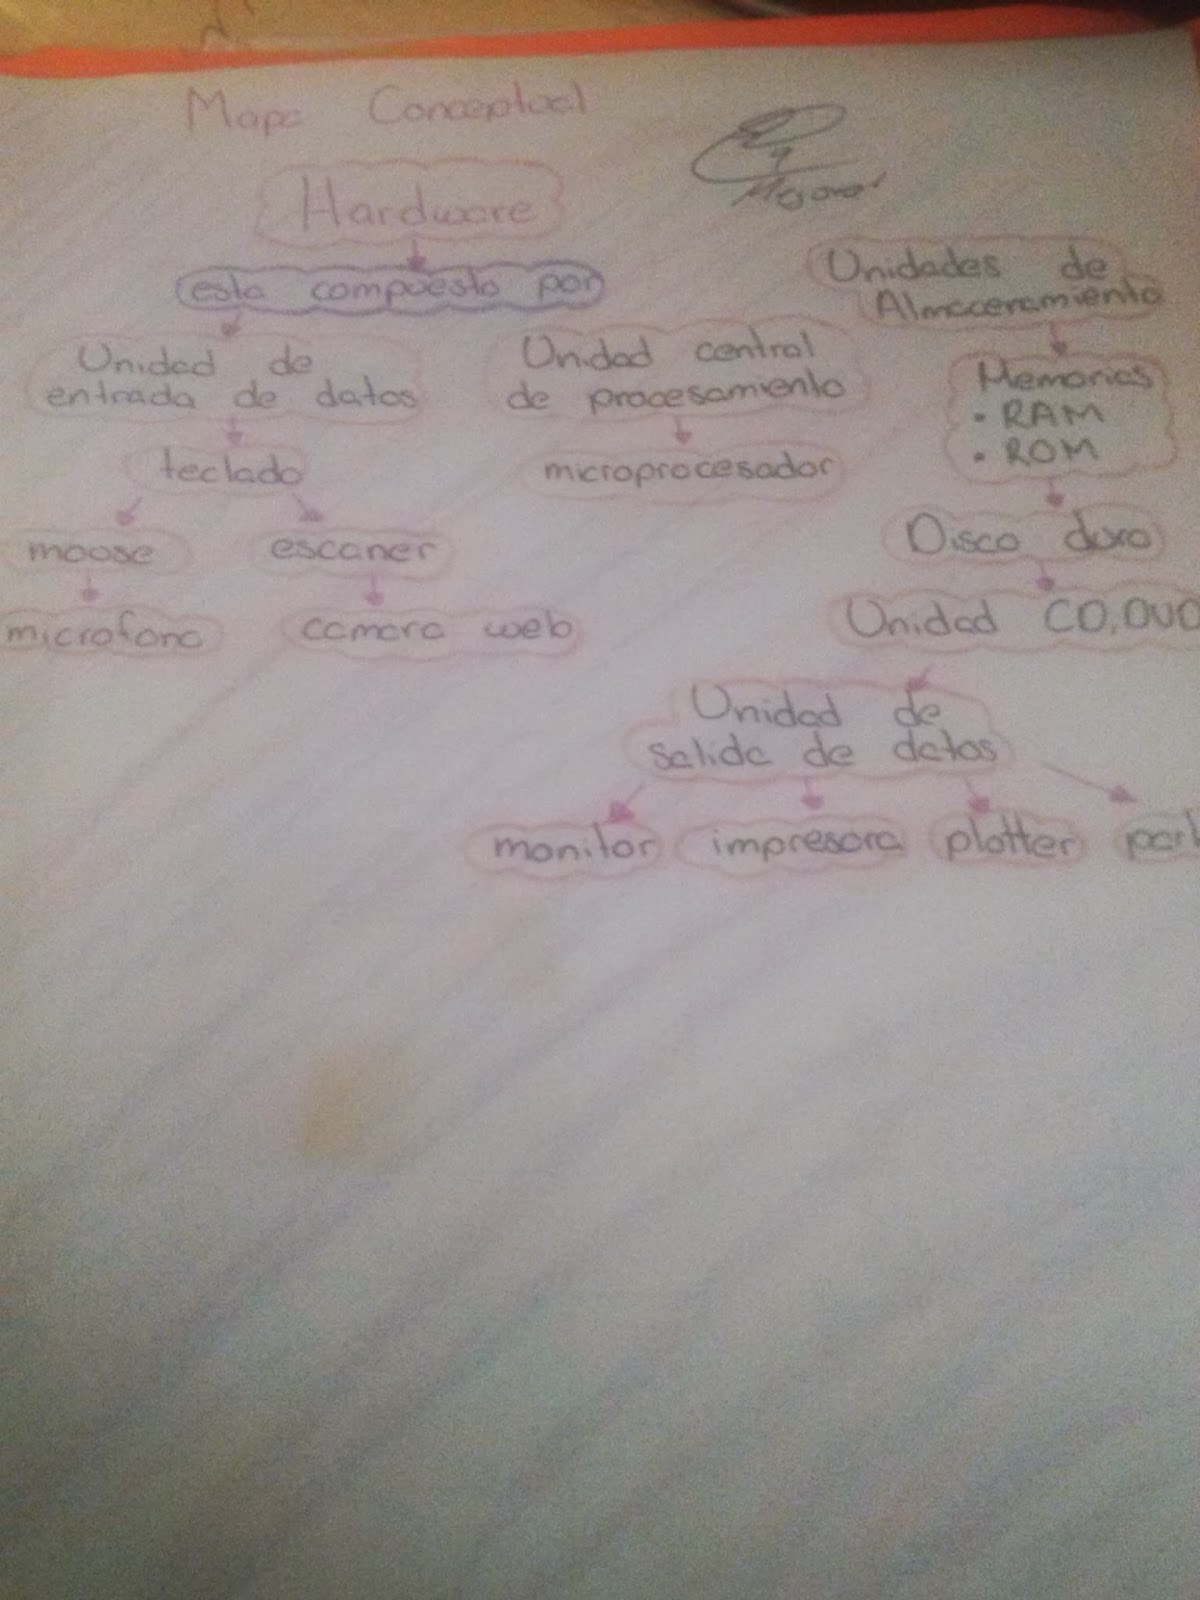 Mapa Conceptual
Hardware
esta compuesto por
Unidad de
entrada de datos
teclado
mouse
escaner
microfono
camara web
Unidad central
de procesamiento
microprocesador
Unidades de
Almacenamiento
Memorias
• RAM
• ROM
Disco duro
Unidad CD, DVD
Unidad de
salida de datos
monitor
impresora
plotter